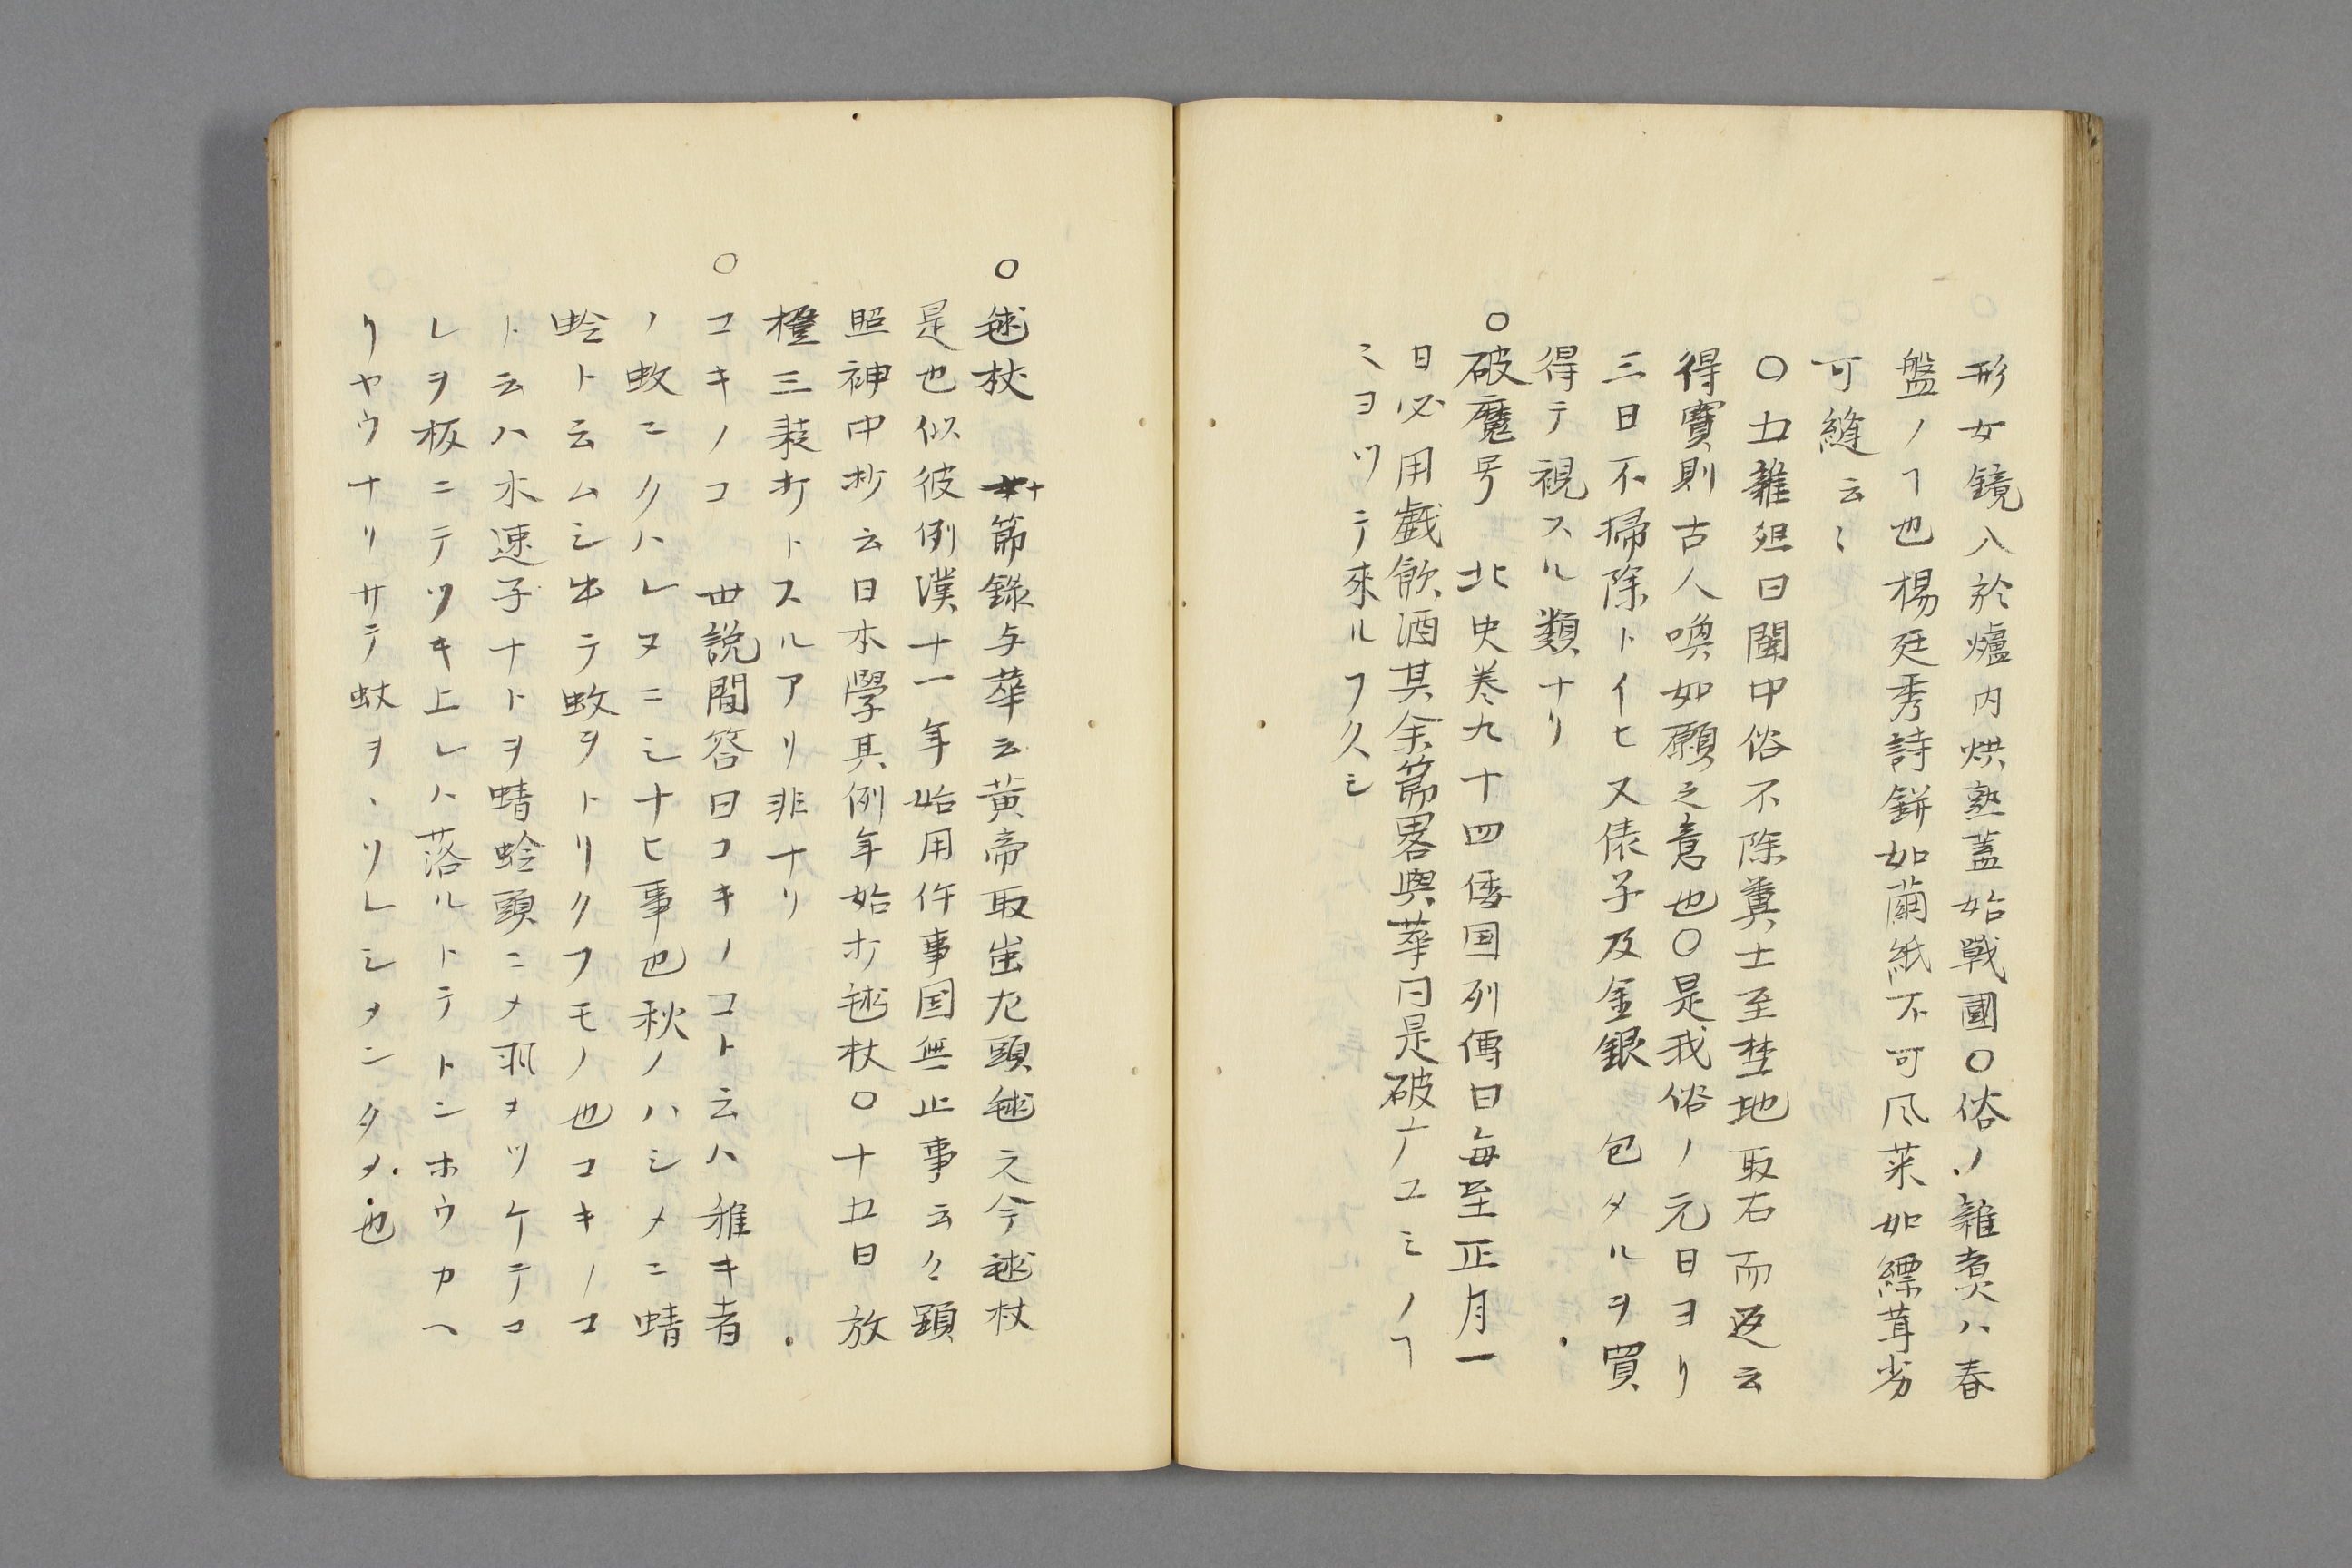 形女鏡入於爐内烘熟蓋始戰國〇俗ノ雑煑ハ春
盤ノヿ也楊廷秀詩餅如繭紙不可风菜如縹茸劣
可縫云〻
〇五雜爼曰閩中俗不除糞土至埜地取石而返云
得寳則古人喚如願之意也〇是我俗ノ元日ヨリ
三日不掃除トイヒ又俵子及金銀 包タルヲ買
得テ視スル類ナリ
〇破魔弓 北史巻九十四倭国列傳曰毎至正月一
日必用戯飲酒其余節畧與華同是破广ユミノヿ
ミヨツテ來ルフ久シ
〇毬杖 十節録与華云黄帝取蚩尤頭毬之今毬杖
是也似彼例漢十一年始用仵事国無止事云々顕
照神中抄云日本學其例年始打毬杖〇十五日放
橙三裴打トスルアリ非ナリ
〇コキノコ 世説問答曰コキノコト云ハ稚キ者
ノ蚊ニクハレヌニシナヒ事也秋ノハシメニ蜻
蛉ト云ムシ出テ蚊ヲトリクフモノ也コキノコ
ト云ハ木連子ナトヲ蜻蛉頭ニメ羽ヲツケテコ
レヲ板ニテツキ上レハ落ルトテトンホウカヘ
リヤウナリサテ蚊ヲヽソレシメンタメ也